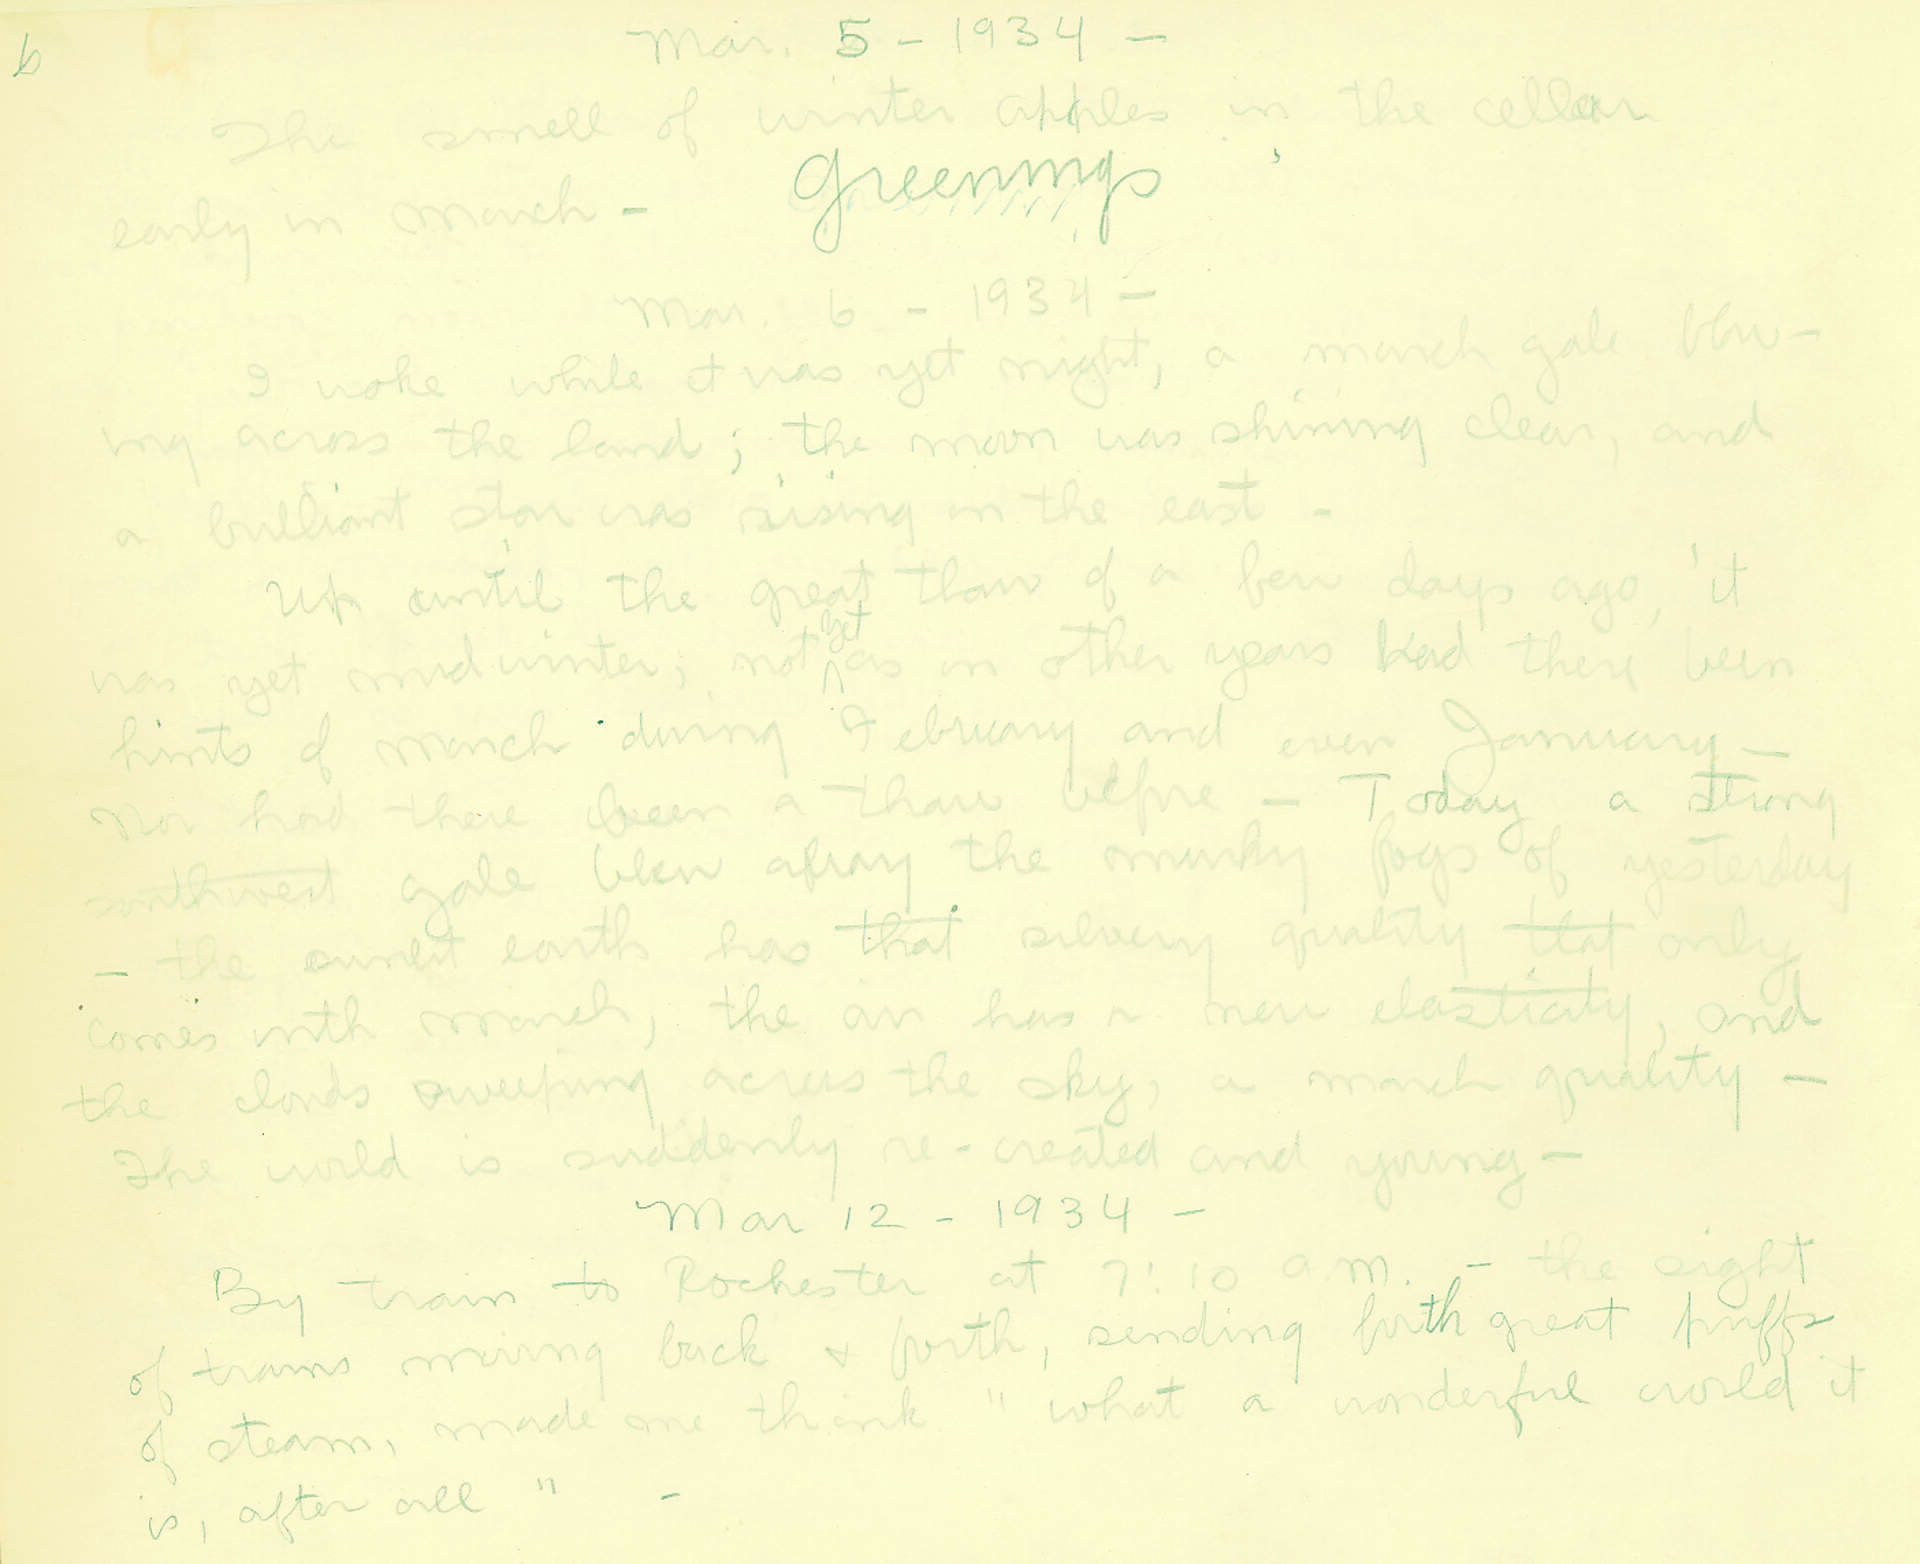 6
Mar. 5 - 1934 -
The smell of winter apples in the cellar
early in March - Greenings
Mar. 6 - 1934 -
I woke while it was yet night, a March gale blow-
ing across the land; the moon was shining clear, and
a brilliant star was rising in the east -
Up until the great thaw of a few days ago, it
was yet midwinter; not yet as in other years had there been
hints of March during February and even January -
Nor had there been a thaw before - Today a strong
southwest gale blew away the murky fogs of yesterday
- the sunlit earth has that silvery quality that only
comes with March, the air has a new elasticity, and
the clouds sweeping across the sky, a March quality -
The world is suddenly re-created and young -
Mar 12 - 1934 -
By train to Rochester at 7:10 a.m. - the sight
of trains moving back & forth, sending forth great puffs
of steam, made me think "what a wonderful world it
is, after all" -